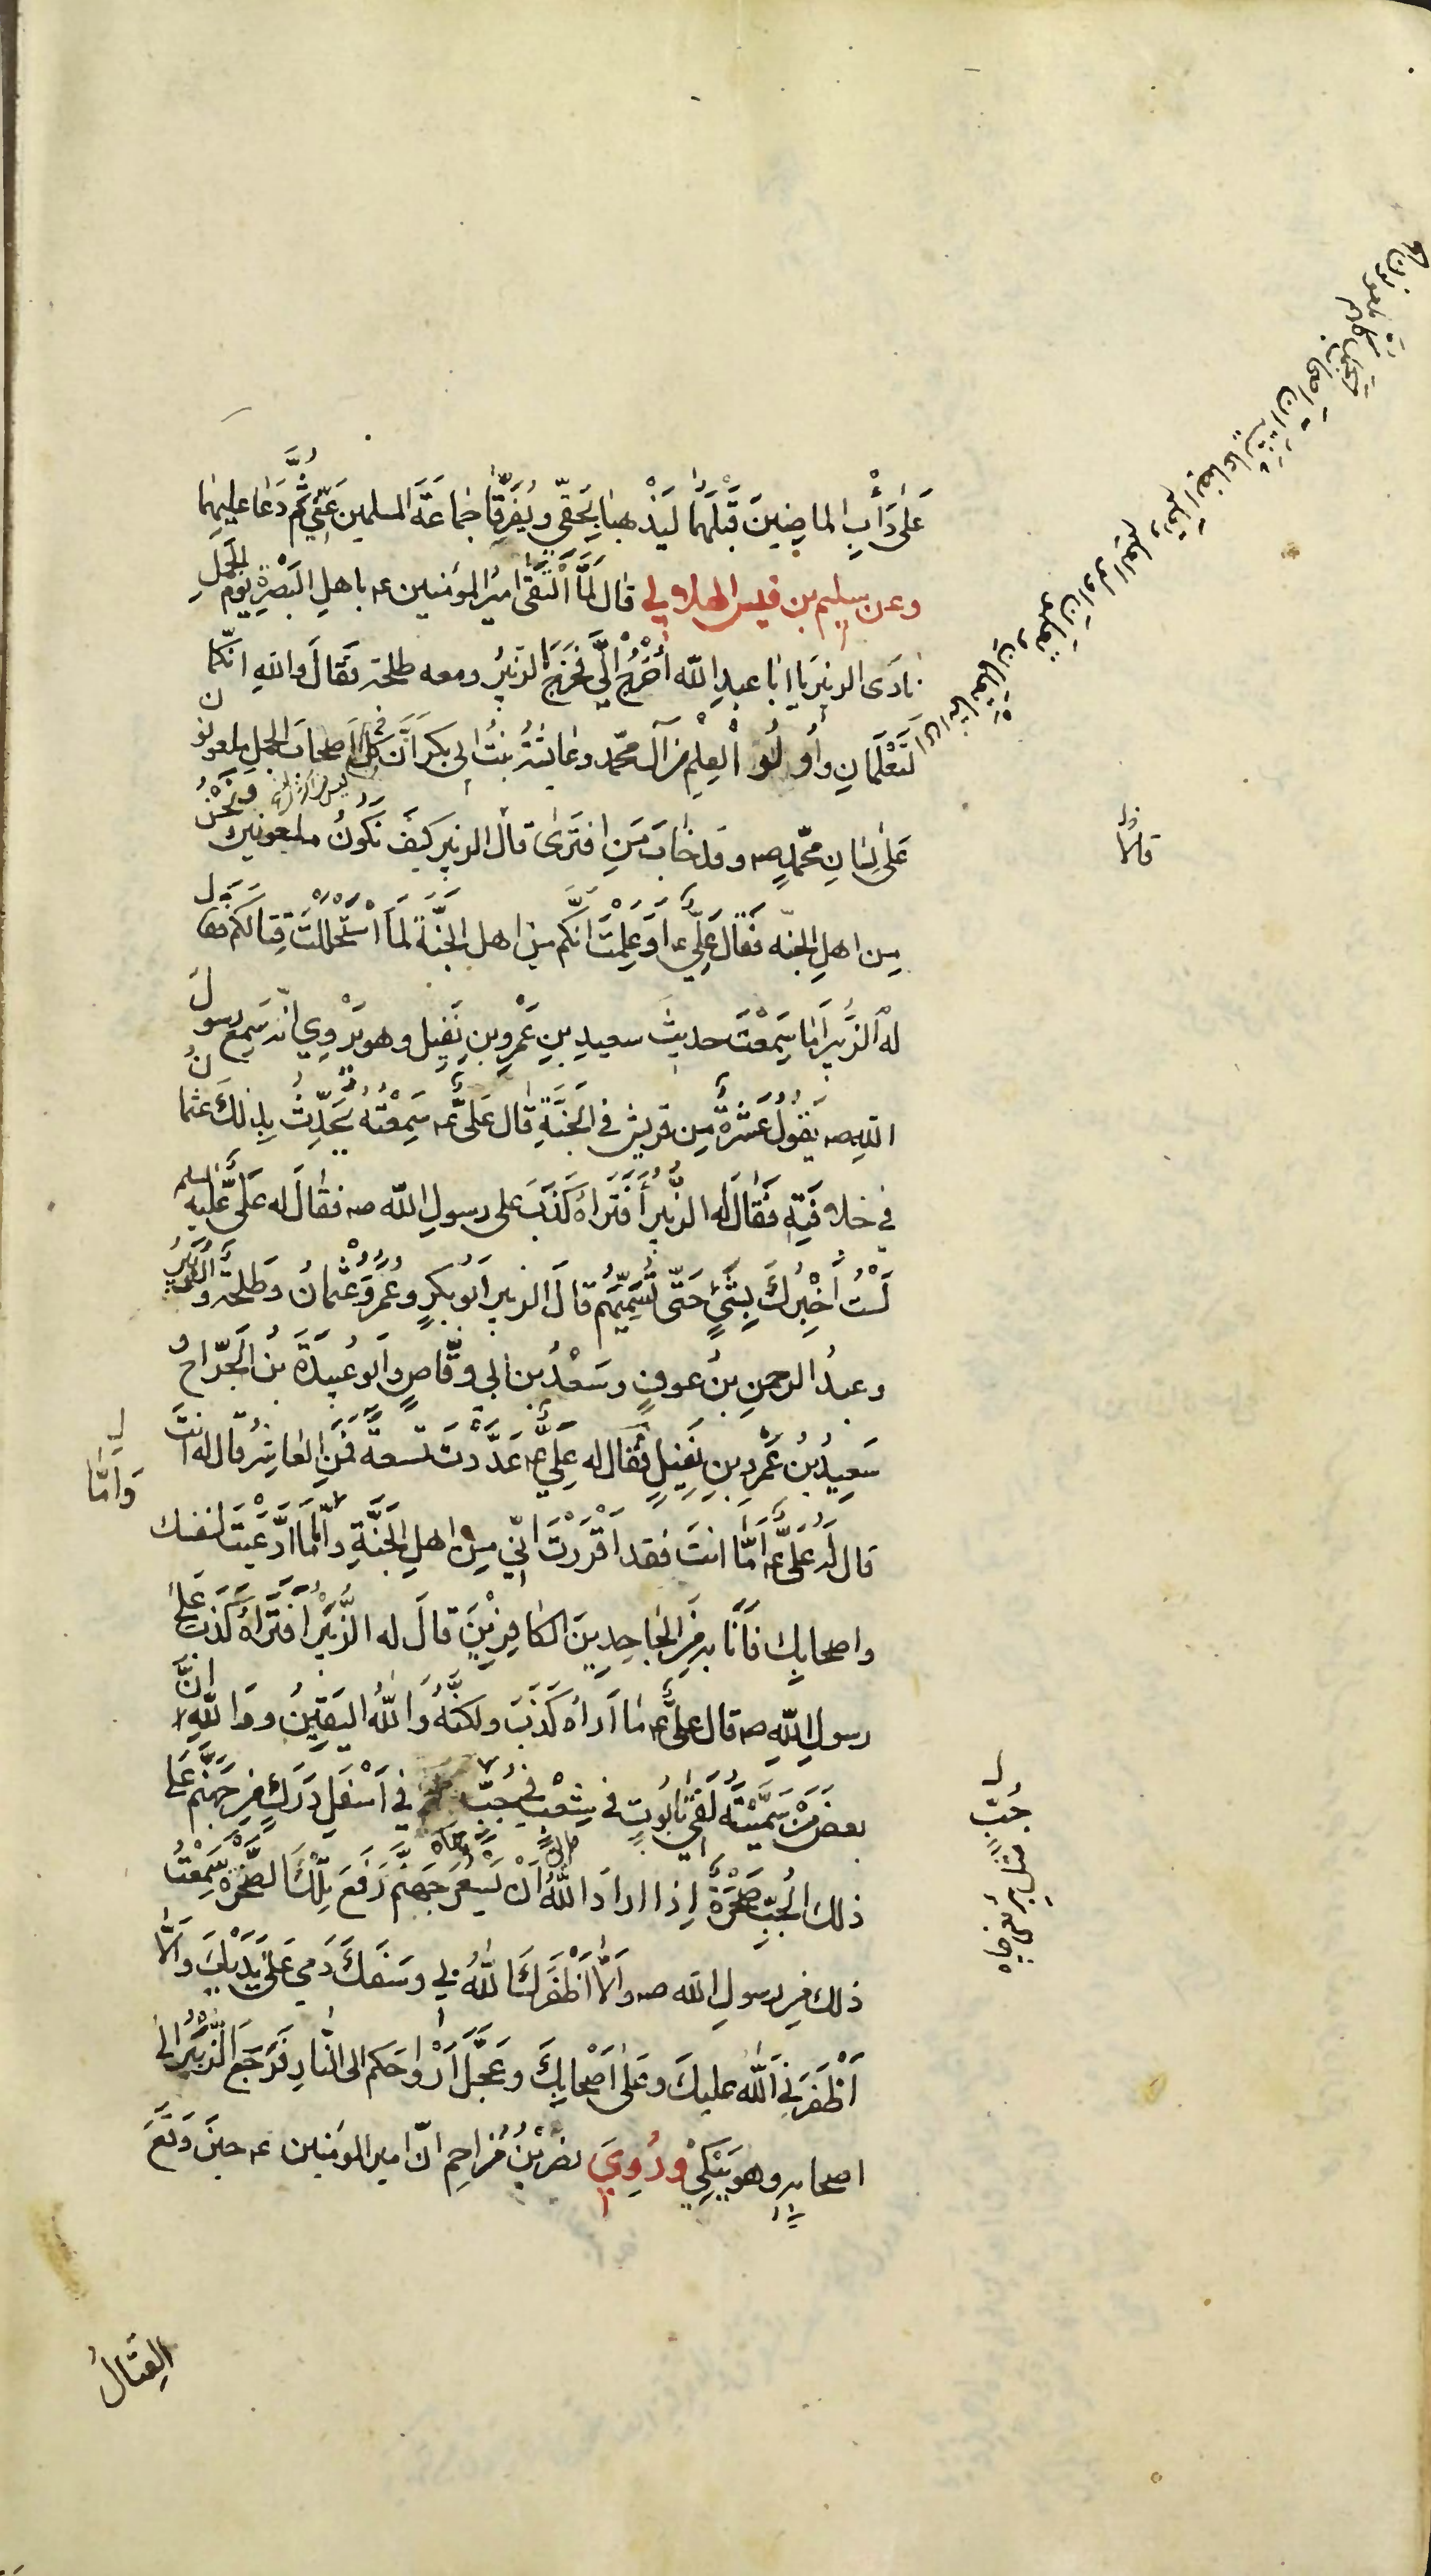 عَلىٰ دَأْبِ الماضِينَ قَبْلَهُما لِيَذْهبا بِحَقّي ويُفَرِّقا جَماعَةَ المسلمينَ عَنّي ثُمَّ دَعا عليهما
وعن سليم بن قيس الهلالي قال لَمّا الْتَقىٰ اميرُ المؤمنين عه باهلِ البَصْرةِ يومَ الجَمَلِ
نادَى الزبيرَ يا ابا عبدِ الله اُخْرُجْ اِلَيَّ فَخَرَجَ الزّبيرُ ومعه طلحة فقالَ واللهِ انّكما
لَتَعْلَمانِ وأُولُو الْعِلمِ من آل محمّد وعائشةُ بنتُ ابى بكر أنَّ كُلَّ اصحابِ الجملِ ملعونون
عَلىٰ لِسٰانِ محمّدٍ صه وقد خٰابَ مَنِ افتَرىٰ قال الزبير كيفَ نَكونُ ملعونين ونَحْنُ
مِن اهلِ الجنّه فَقالَ عَلِيٌّ ع اوَ عَلِمْتُ انَّكُم مِن اهل الجَنَّةِ لَمَا اسْتَحْلَلْتُ قِتالَكُم فقال
لهُ الزُّبَيرُ اَمٰا سَمِعْتَ حديثَ سعيدِ بنِ عَمْرِو بنِ نُفَيل وهو يَرْوِي انّه سَمِعَ رسولَ
اللهِ صه يَقولُ عَشْرةٌ مِن قريش في الجَنَّةِ قٰال عَلىٌّ عه سَمِعْتُهُ يُحَدِّثُ بِذلكَ عثمانَ
في خلافَتِه فَقالَ له الزُّبيرُ أَفَتَراهُ كَذَبَ على رسولِ اللّه صه فقٰالَ له عَلىٌّ عليه السلم
لَسْتُ اُخْبِرُكَ بِشَىْءٍ حَتّى تُسَمِّيَهُم قالَ الزبير اَبوبَكرٍ وعُمَرُ وعُثْمانُ وطَلحةُ والزُّبَيرُ
وعبدُ الرحمنِ بنُ عوفٍ وسَعْدُ بن ابي وقّاصٍ وابو عُبيدَةَ بنُ الجَرّاحِ و
سَعِيدُ بنُ عَمْرِو بنِ نُفَيلٍ فَقال له عَلِيٌّ عه عَدَدْتَ تسعةً فَمَنِ العاشِرُ قال له انتَ
قال له عَلىٌّ عه اَمّا انتَ فقد اَقْرَرْتَ انّي مِن اهلِ الجَنَّةِ وامّا ما ادَّعَيْتَ لنفسك
واصحابِك فَاَنا به مِنَ الجاحِدِينَ الكافِرِيْنَ قالَ له الزُّبَيْرُ اَفَتَراهُ كَذَبَ عَلىٰ
رسولِ اللهِ صه قال علىٌّ عه مٰا اَراهُ كَذَبَ ولكنَّهُ وَاللّهِ اليَقينُ ووَاللهِ انَّ
بعضَ مَنْ سَمَّيْتَهُ لَفي تابُوتٍ في شِعْبٍ في جُبٍّ في اَسْفَلِ دَرَكٍ مِن جَهَنَّمَ عَلى
ذلكَ الجُبِّ صَخْرَةٌ اِذا ارادَ اللهُ اَنْ يُسَعِّرَ جَهَنَّمَ رَفَعَ تِلْكَ الصَّخْرَةَ سَمِعْتُ
ذلك مِن رسولِ الله صه واِلّا اَظْفَرَكَ اللّهُ بي وسَفَكَ دَمي عَلىٰ يَدَيْكَ واِلّا
اَظْفَرَنِيَ اللهُ عليكَ وعَلىٰ اَصْحابِكَ وعَجَّلَ اَرْواحَكم الى النّارِ فَرَجَعَ الزُّبَيْرُ الىٰ
اصحابِه وهو يَبْكي ورُوِيَ نصرُ بْنُ مُزاحِم انّ امير المؤمنين عه حينَ وَقَعَ
وَامّا
جُبّ
القِتالُ